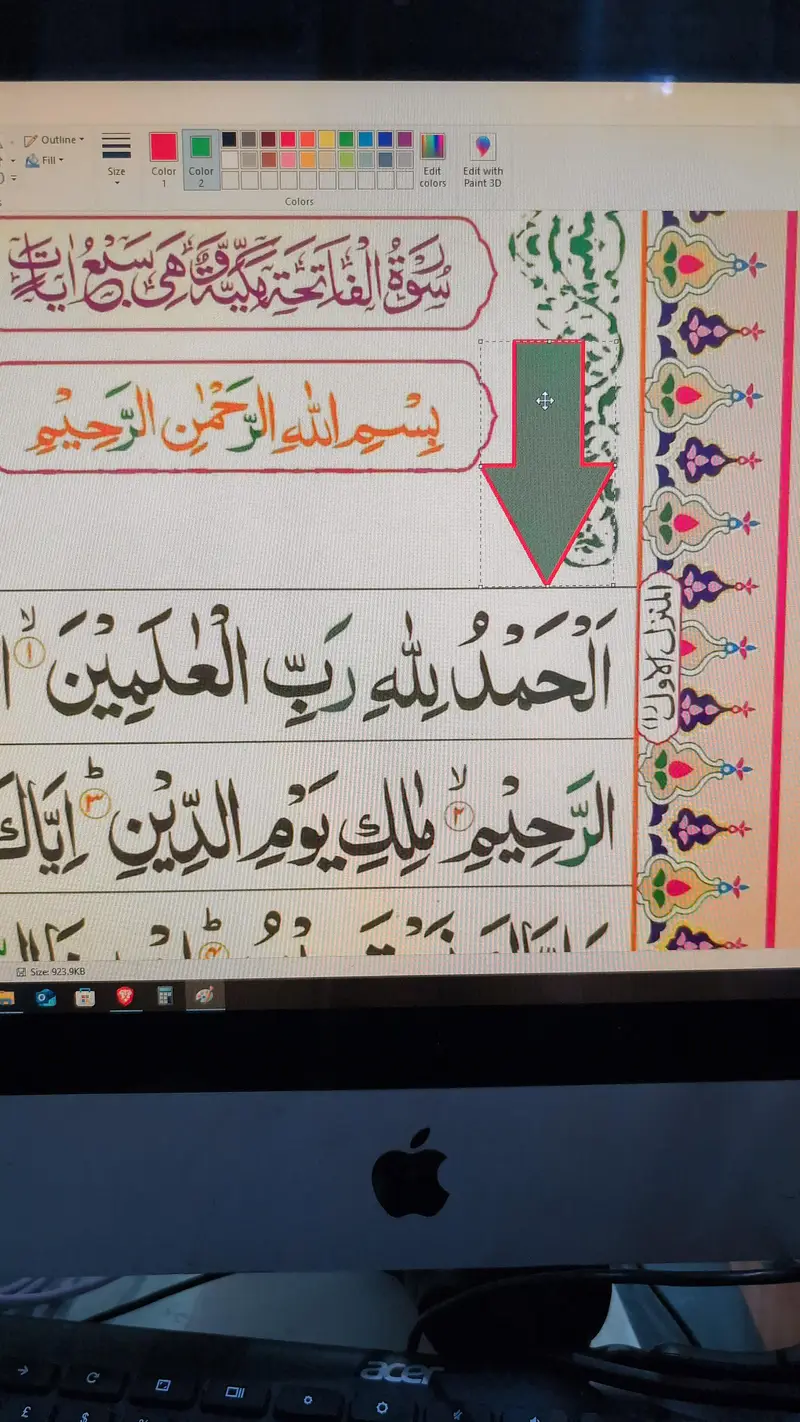 Outline
Fill
Size
Color 1
Color 2
Edit colors
Edit with Paint 3D
Colors
سُوْرَةُ الْفَاتِحَةِ مَكِّيَّةٌ وَّهِىَ سَبْعُ اٰيَاتٍ
بِسْمِ اللّٰهِ الرَّحْمٰنِ الرَّحِيْمِ
اَلْحَمْدُ لِلّٰهِ رَبِّ الْعٰلَمِيْنَ ۙ ١
المنزل الاول (١)
الرَّحِيْمِ ۙ ٢ مٰلِكِ يَوْمِ الدِّيْنِ ؕ ٣ اِيَّاكَ
٤
Size: 923.9KB
acer
£
$
%